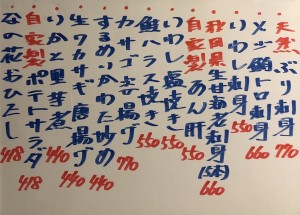 天然ぶり刺身 770
メジ鮪トロ刺身 660
いわし刺身 550
秋田県生甘海老刺身(5本) 660
自家製あん肝 550
いわし塩焼き 550
鮭ハラス焼き 550
カサゴ唐揚げ 770
するめいかわた炒め 440
生ワカサギ唐揚げ 440
いかと里芋煮 440
自家製ポテトサラダ 418
なの花おひたし 418